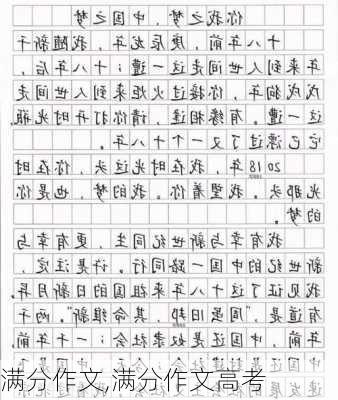 你我之梦，中国之梦
十八年前，庚辰龙年，我随新千
年来到人世间走这一遭；十八年后，
戊戌狗年，你接过火炬来到人世间走
这一遭。有缘相逢，请你打开时光瓶，
它已漂过了又一个十八年。
2018年，我在时光这头，你在时
光那头。我望着你。我的梦，也是你
的梦。
我有幸与新世纪同生，更有幸与
新世纪的中国一路同行。许是注定，
我见证了这十八年来祖国的日新月异。
有道是，“周虽旧邦，其命维新”。两千
年前，中国还是奴隶社会；一千年前，
满分作文,满分作文高考